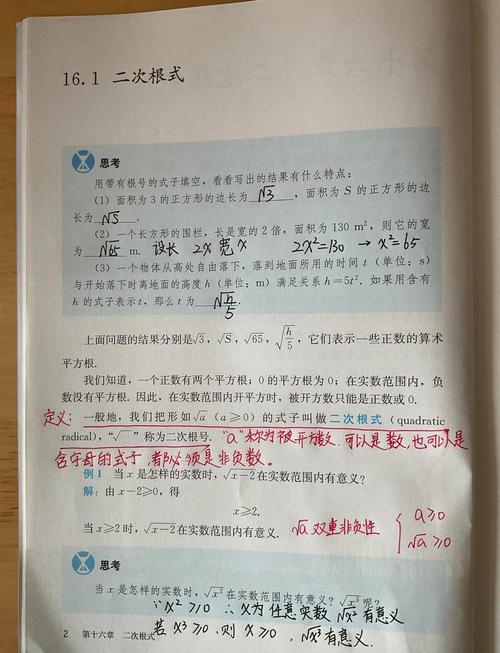 16.1 二次根式
思考
用带有根号的式子填空，看看写出的结果有什么特点：
(1) 面积为 3 的正方形的边长为 √3 ，面积为 S 的正方形的边
长为 √S .
(2) 一个长方形的围栏，长是宽的 2 倍，面积为 130 m²，则它的宽
为 √65 m. 设长 2x 宽 x 2x²=130 → x²=65
(3) 一个物体从高处自由落下，落到地面所用的时间 t（单位：s）
与开始落下时离地面的高度 h（单位：m）满足关系 h=5t². 如果用含有
h 的式子表示 t，那么 t 为 √(h/5)
上面问题的结果分别是√3，√S，√65，√(h/5)，它们表示一些正数的算术
平方根.
我们知道，一个正数有两个平方根；0 的平方根为 0；在实数范围内，负
数没有平方根. 因此，在实数范围内开平方时，被开方数只能是正数或 0.
定义：一般地，我们把形如√a（a≥0）的式子叫做二次根式（quadratic
radical），“√ ”称为二次根号. “a”称为被开方数，可以是数，也可以是
含字母的式子，都必须是非负数。
例 1 当 x 是怎样的实数时，√(x-2)在实数范围内有意义？
解：由 x-2≥0，得
x≥2.
当 x≥2 时，√(x-2)在实数范围内有意义. √a 双重非负性 { a≥0
√a≥0
思考
当 x 是怎样的实数时，√x²在实数范围内有意义？√x³呢？
∵x²≥0 ∴x为任意实数 √x²有意义
若 x³≥0，则 x≥0，√x³有意义.
2 第十六章 二次根式